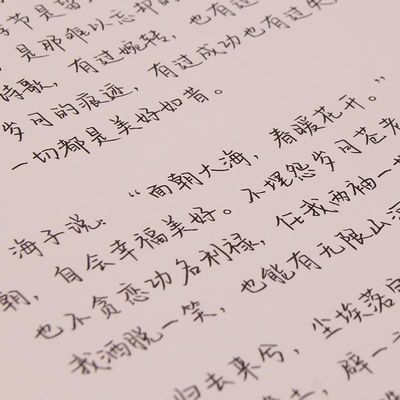 季节是
是那难以忘却的
诗歌，有过婉转，也有过
岁月的痕迹，有过成功也有过失
一切都是美好如昔。
海子说：“面朝大海，春暖花开。”
朝，自会幸福美好。不埋怨岁月苍老
也不贪恋功名利禄，任我两袖一
我洒脱一笑，也能有无限山河
归去来兮，尘埃落
土，辟一方